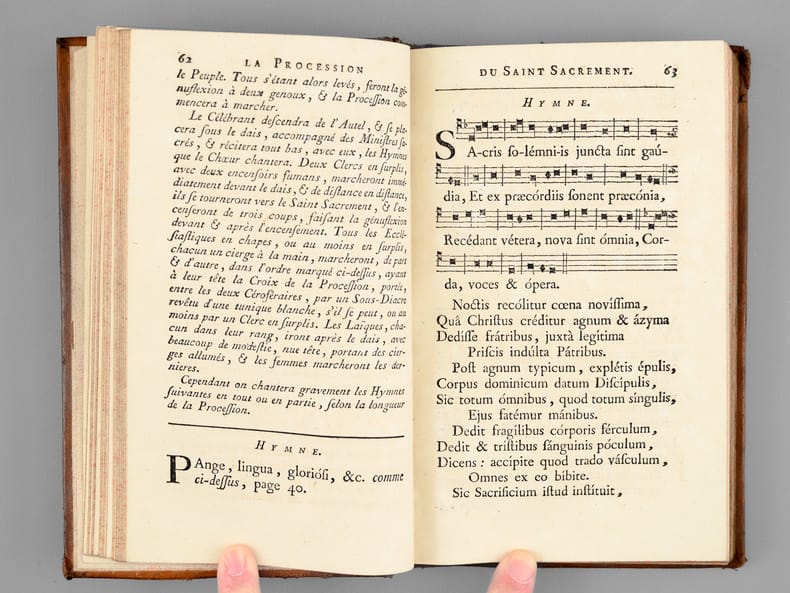 62 LA PROCESSION
le Peuple. Tous s'étant alors levés, feront la gé-
nuflexion à deux genoux, & la Procession com-
mencera à marcher.
Le Célébrant descendra de l'Autel, & se pla-
cera sous le dais, accompagné des Ministres sa-
crés, & récitera tout bas, avec eux, les Hymnes
que le Chœur chantera. Deux Clercs en surplis,
avec deux encensoirs fumans, marcheront immé-
diatement devant le dais, & de distance en distance,
ils se tourneront vers le Saint Sacrement, & l'en-
censeront de trois coups, faisant la génuflexion
devant & après l'encensement. Tous les Ecclé-
siastiques en chapes, ou au moins en surplis,
chacun un cierge à la main, marcheront, de part
& d'autre, dans l'ordre marqué ci-dessus, ayant
à leur tête la Croix de la Procession, portée,
entre les deux Céroféraires, par un Sous-Diacre
revêtu d'une tunique blanche, s'il se peut, ou au
moins par un Clerc en surplis. Les Laïques, cha-
cun dans leur rang, iront après le dais, avec
beaucoup de modestie, nue tête, portant des cier-
ges allumés, & les femmes marcheront les der-
nieres.
Cependant on chantera gravement les Hymnes
suivantes en tout ou en partie, selon la longueur
de la Procession.
HYMNE.
PAnge, lingua, gloriósi, &c. comme
ci-dessus, page 40.
DU SAINT SACREMENT. 63
HYMNE.
SA-cris so-lémni-is juncta sint gaú-
dia, Et ex præcórdiis sonent præcónia,
Recédant vétera, nova sint ómnia, Cor-
da, voces & ópera.
Noctis recólitur cœna novíssima,
Quâ Christus créditur agnum & ázyma
Dedisse frátribus, juxtà legítima
Priscis indúlta Pátribus.
Post agnum typicum, explétis épulis,
Corpus dominicum datum Discípulis,
Sic totum ómnibus, quod totum síngulis,
Ejus fatémur mánibus.
Dedit fragílibus córporis férculum,
Dedit & trístibus sánguinis póculum,
Dicens : accípite quod trado vásculum,
Omnes ex eo bíbite.
Sic Sacrificium istud instítuit,